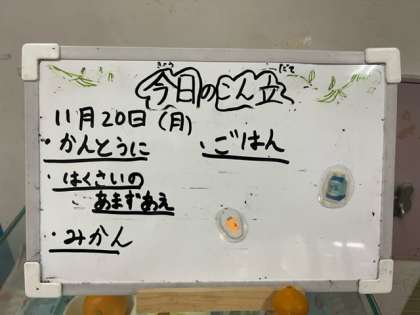 今日のこん立
きょう だて
11月20日(月)
・かんとうに
・ごはん
・はくさいの
あまずあえ
・みかん